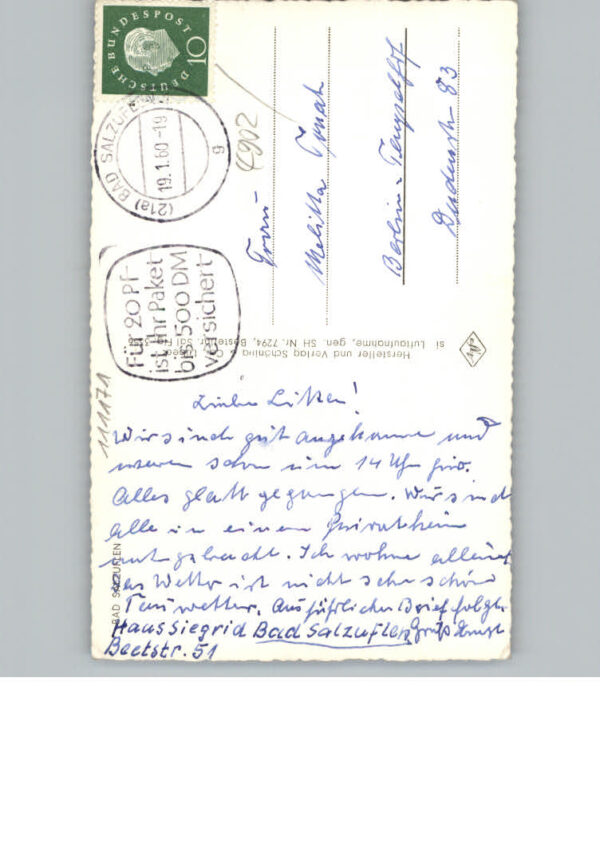 DEUTSCHE BUNDESPOST
10
(21a) BAD SALZUFLEN
19.1.60-19
g
Für 20 PF
ist Ihr Paket
bis 500 DM
versichert
4902
Frau
Melitta
Berlin-Tempelhof
Dudenstr 83
Hersteller und Verlag Schöning &
si Luftaufnahme, gen. SH Nr. 7294, Bestell-Nr. Sal
111171
BAD SALZUFLEN
Liebe
Wir sind gut angekommen und
waren schon um 14 Uhr hier.
Alles glatt gegangen. Wir sind
alle in einem Privatheim
untergebracht. Ich wohne allein
das Wetter ist nicht sehr schön
Tauwetter. Ausführlicher Brief folgt.
Haus Siegrid Bad Salzuflen Gruß
Beetstr. 51